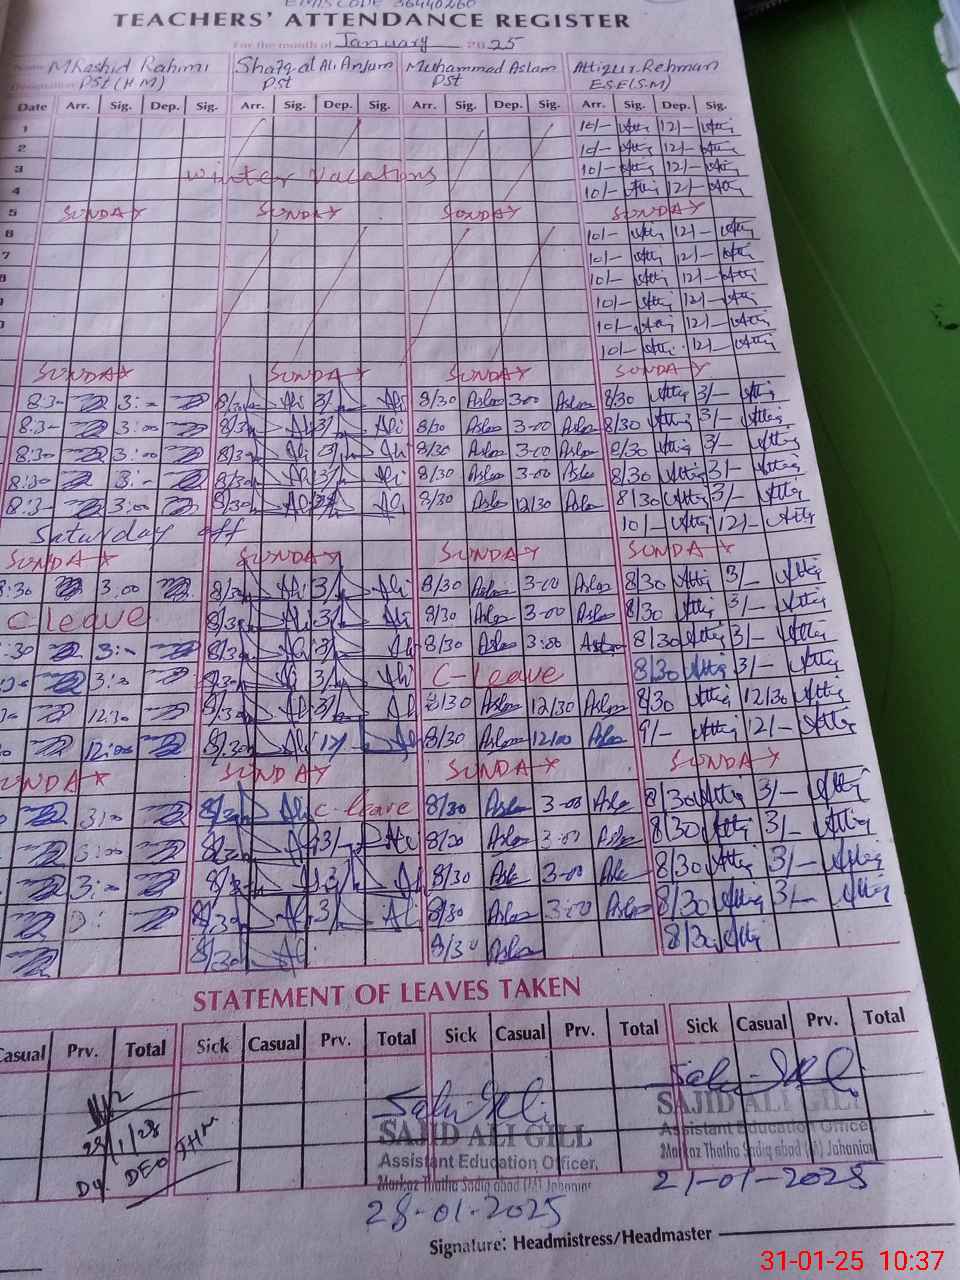 EMIS CODE 36440260
TEACHERS' ATTENDANCE REGISTER
For the month of January 2025
Name MRashid Rahimi Shafqat Ali Anjum Muhammad Aslam Attiqur-Rehman
PSt (H.M) PSt PSt E.S.E(S.M)
Date Arr. Sig. Dep. Sig. Arr. Sig. Dep. Sig. Arr. Sig. Dep. Sig. Arr. Sig. Dep. Sig.
1 10/- Attiq 12/- Attiq
2 10/- Attiq 12/- Attiq
3 winter vacations 10/- Attiq 12/- Attiq
4 10/- Attiq 12/- Attiq
5 SUNDAY SUNDAY SUNDAY SUNDAY
6 10/- Attiq 12/- Attiq
7 10/- Attiq 12/- Attiq
8 10/- Attiq 12/- Attiq
10/- Attiq 12/- Attiq
10/- Attiq 12/- Attiq
10/- Attiq 12/- Attiq
SUNDAY SUNDAY SUNDAY SUNDAY
8:30 3:- 8/30 Ali 3/- Ali 8/30 Aslam 3-00 Aslam 8/30 Attiq 3/- Attiq
8:3- 3:00 8/30 Ali 3/- Ali 8/30 Aslam 3-00 Aslam 8/30 Attiq 3/- Attiq
8:30 3:00 8/30 Ali 3/- Ali 8/30 Aslam 3-00 Aslam 8/30 Attiq 3/- Attiq
8:30 3:- 8/30 Ali 3/- Ali 8/30 Aslam 3-00 Aslam 8/30 Attiq 3/- Attiq
8:3- 3:00 8/30 Ali Ali 8/30 Aslam 12/30 Aslam 8/30 Attiq 3/- Attiq
Saturday off 10/- Attiq 12/- Attiq
SUNDAY SUNDAY SUNDAY SUNDAY
8:30 3:00 8/30 Ali 3/- Ali 8/30 Aslam 3-00 Aslam 8/30 Attiq 3/- Attiq
C leave 8/30 Ali 3/- Ali 8/30 Aslam 3-00 Aslam 8/30 Attiq 3/- Attiq
:30 3:- 8/30 Ali 3/- Ali 8/30 Aslam 3:00 Aslam 8/30 Attiq 3/- Attiq
3:00 8/30 Ali 3/- Ali C-leave 8/30 Attiq 3/- Attiq
12:30 8/30 Ali 3/- Ali 8/30 Aslam 12/30 Aslam 8/30 Attiq 12/30 Attiq
12:00 8/30 Ali Ali 8/30 Aslam 12/00 Aslam 9/- Attiq 12/- Attiq
SUNDAY SUNDAY SUNDAY SUNDAY
3:00 8/30 Ali C-leave 8/30 Aslam 3-00 Aslam 8/30 Attiq 3/- Attiq
3:00 8/30 Ali 3/- Ali 8/30 Aslam 3:00 Aslam 8/30 Attiq 3/- Attiq
3:00 8/30 Ali 3/- Ali 8/30 Aslam 3-00 Aslam 8/30 Attiq 3/- Attiq
3: 8/30 Ali 3/- Ali 8/30 Aslam 3:00 Aslam 8/30 Attiq 3/- Attiq
8/30 Ali 8/30 Aslam 8/30 Attiq
STATEMENT OF LEAVES TAKEN
Casual Prv. Total Sick Casual Prv. Total Sick Casual Prv. Total Sick Casual Prv. Total
SAJID ALI GILL
Assistant Education Officer,
Markaz Thatha Sadiq abad (M) Jahanian
28-01-2025
SAJID ALI GILL
Assistant Education Officer
Markaz Thatha Sadiq abad (M) Jahanian
21-01-2025
Dy. DEO
Signature: Headmistress/Headmaster
31-01-25 10:37